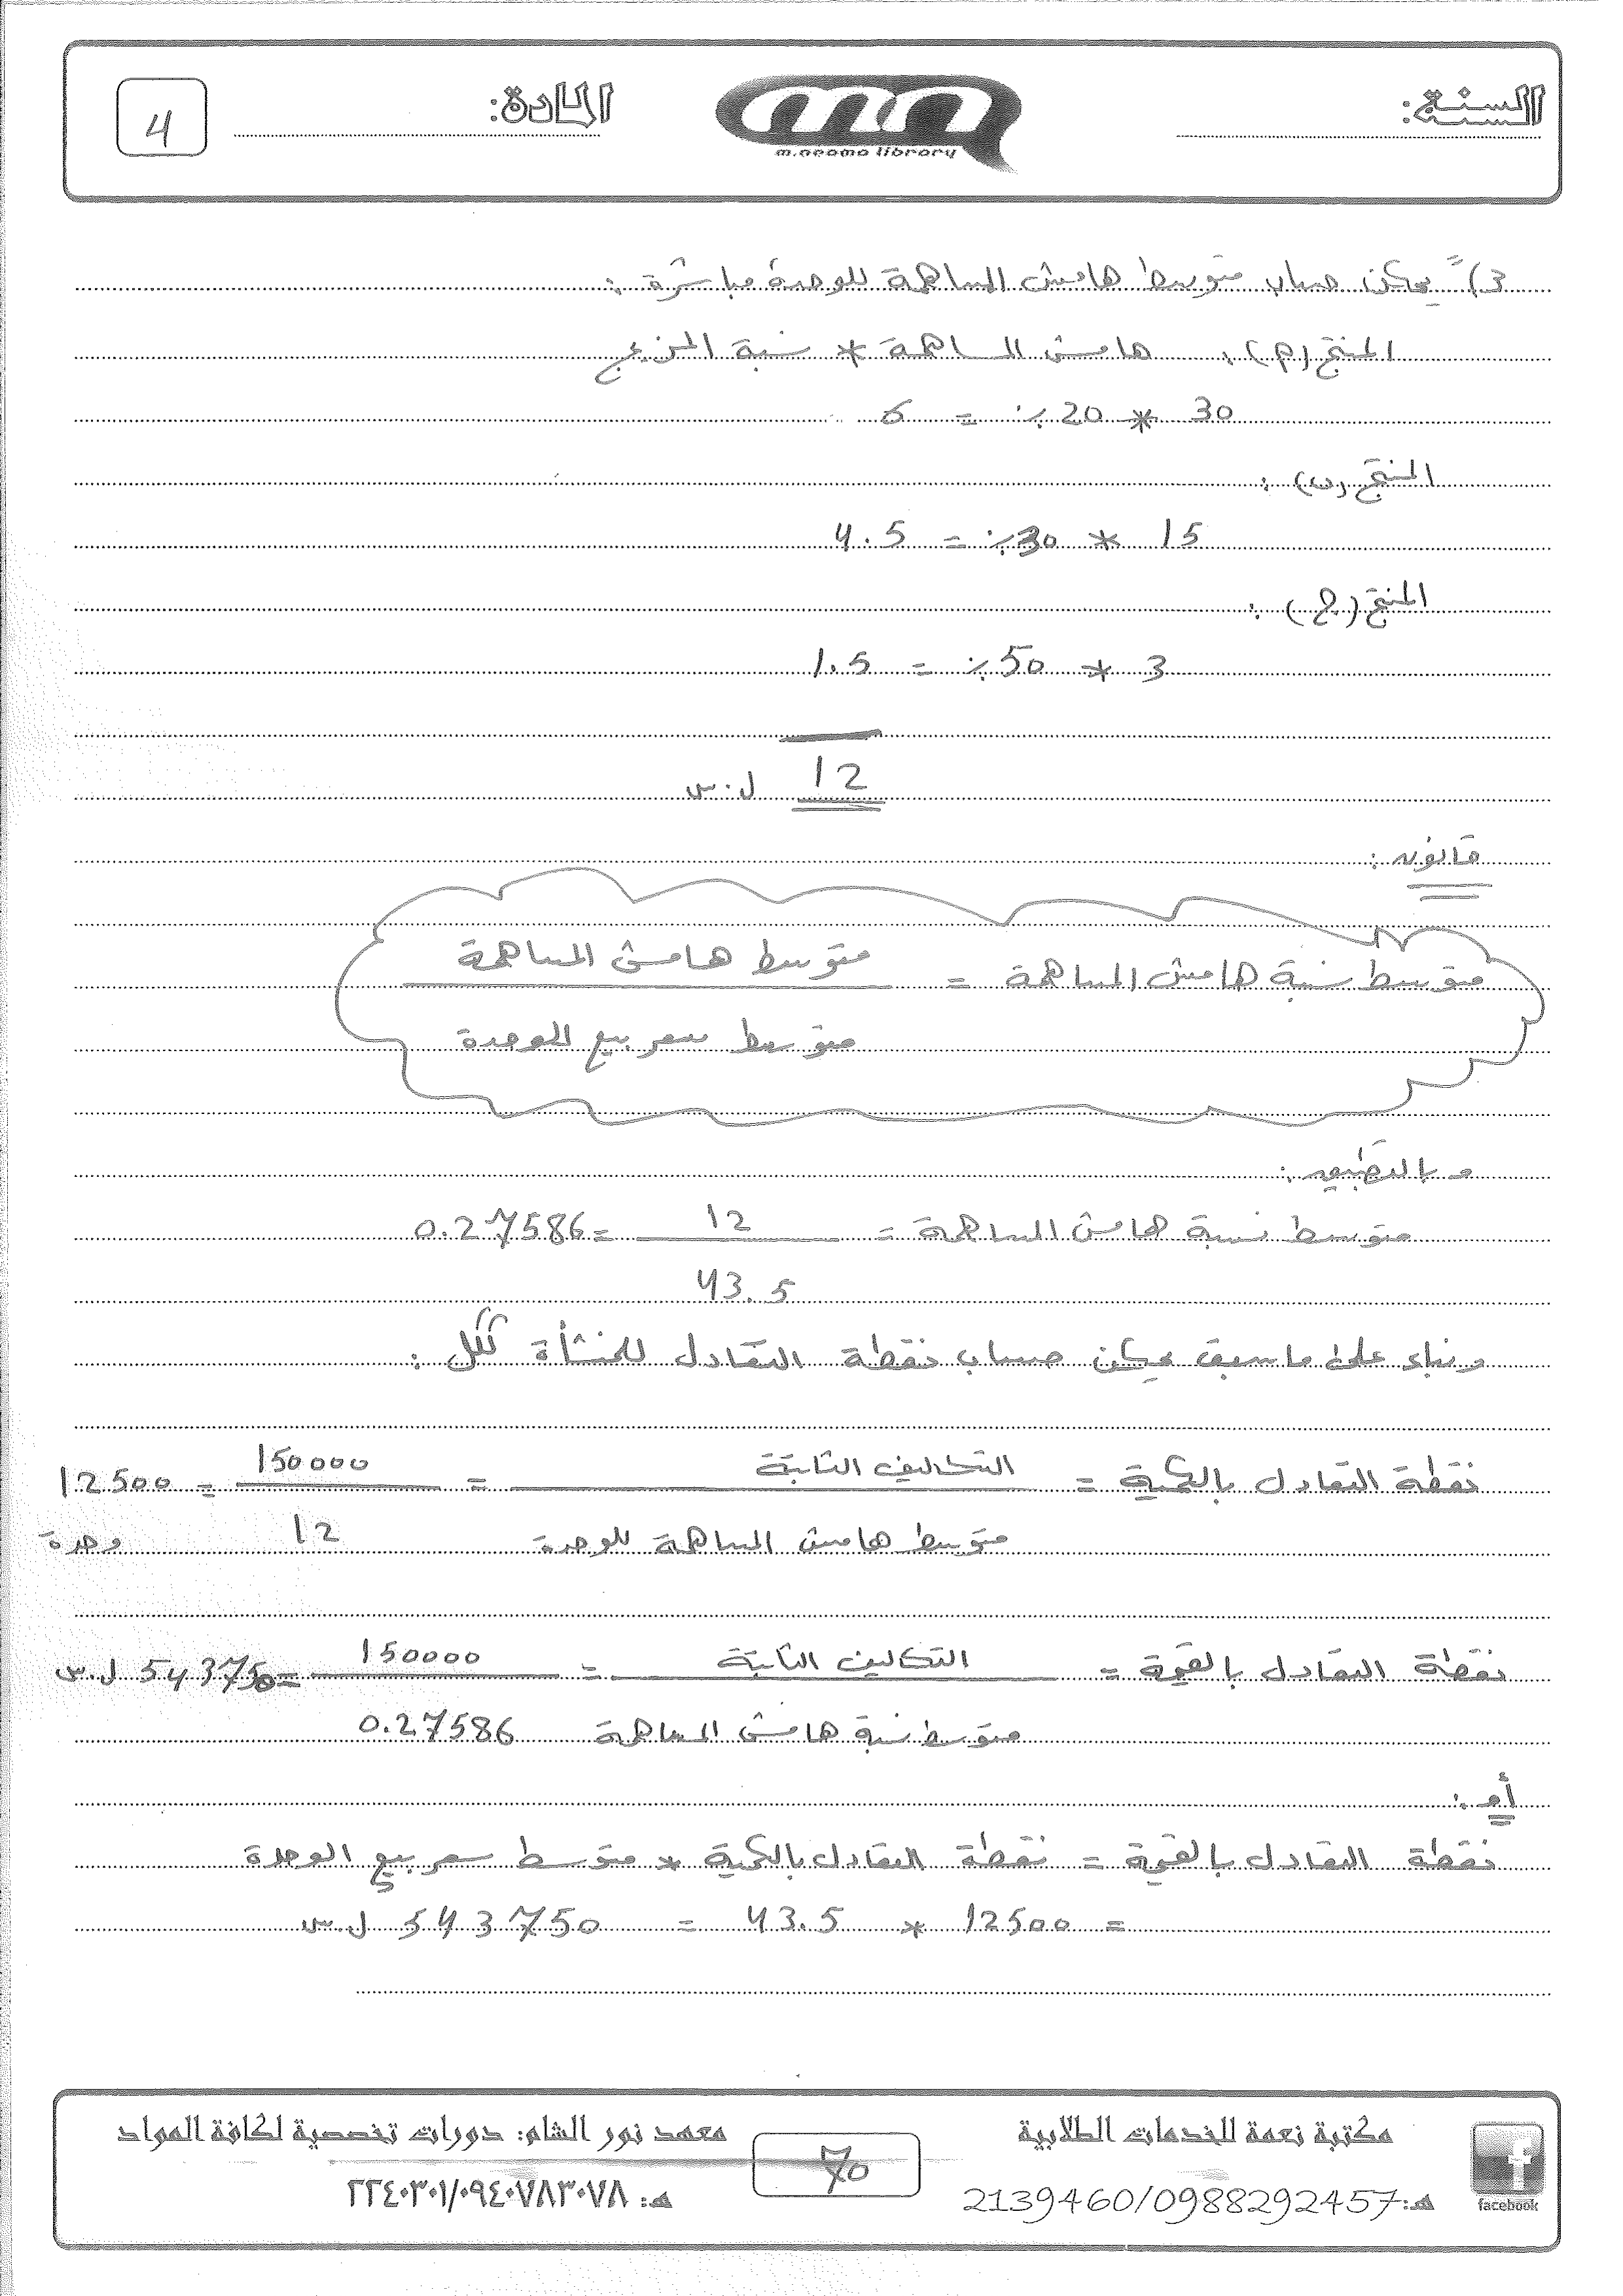 السنة:
m.neama library
المادة:
4
3) يمكن حساب متوسط هامش المساهمة للوحدة مباشرة :
المنتج (م) : هامش المساهمة * نسبة المزيج
30 * 20 ٪ = 6
المنتج (ب) :
15 * 30٪ = 4.5
المنتج (ج) :
3 * 50٪ = 1.5
12 ل.س
قانون :
متوسط نسبة هامش المساهمة = متوسط هامش المساهمة
متوسط سعر بيع الوحدة
و بالتطبيق :
متوسط نسبة هامش المساهمة = 12 = 0.27586
43.5
و بناء على ما سبق يمكن حساب نقطة التعادل للمنشأة ككل :
نقطة التعادل بالكمية = التكاليف الثابتة = 150000 = 12500
متوسط هامش المساهمة للوحدة 12 وحدة
نقطة التعادل بالقيمة = التكاليف الثابتة = 150000 = 543750 ل.س
متوسط نسبة هامش المساهمة 0.27586
أو :
نقطة التعادل بالقيمة = نقطة التعادل بالكمية * متوسط سعر بيع الوحدة
= 12500 * 43.5 = 543750 ل.س
facebook
مكتبة نعمة للخدمات الطلابية
هـ: 2139460/0988292457
70
معهد نور الشام: دورات تخصصية لكافة المواد
هـ: ٢٢٤٠٣٠١/٠٩٤٠٧٨٣٠٧٨